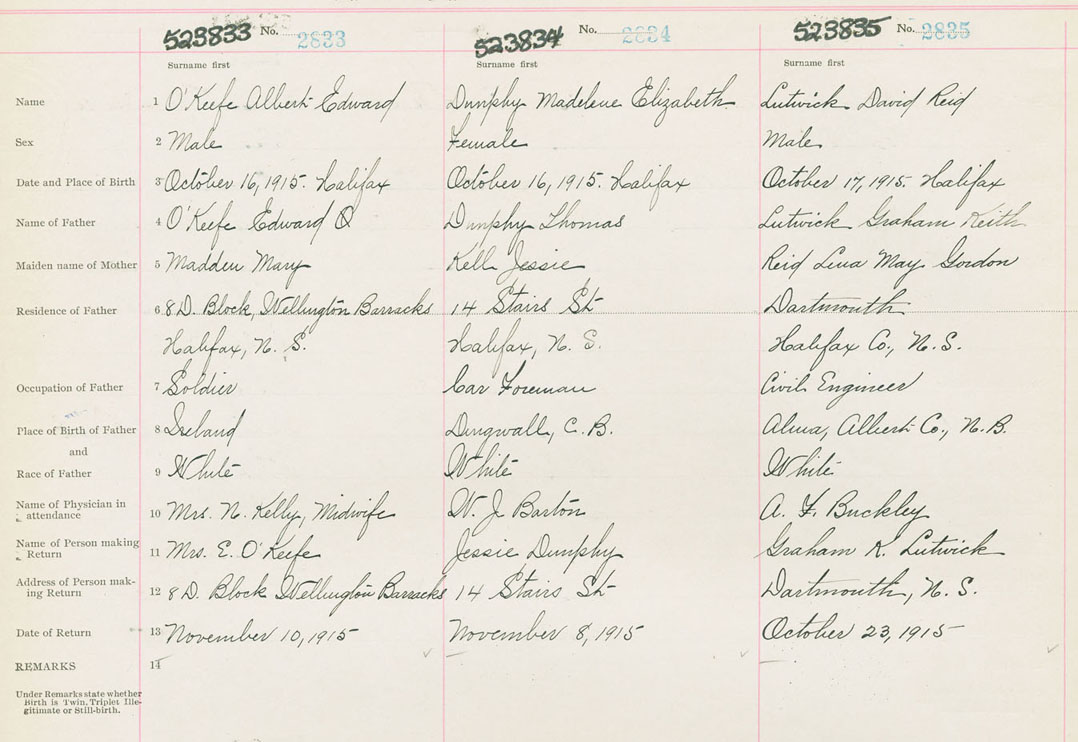 523833 No. 2833 523834 No. 2834 523835 No. 2835
Surname first Surname first Surname first
Name 1 O'Keefe Albert Edward Dunphy Madelene Elizabeth Lutwick David Reid
Sex 2 Male Female Male
Date and Place of Birth 3 October 16, 1915. Halifax October 16, 1915. Halifax October 17, 1915. Halifax
Name of Father 4 O'Keefe Edward Dunphy Thomas Lutwick Graham Keith
Maiden name of Mother 5 Madden Mary Kell Jessie Reid Lena May Gordon
Residence of Father 6 8 D. Block, Wellington Barracks 14 Stairs St Dartmouth
Halifax, N. S. Halifax, N. S. Halifax Co., N. S.
Occupation of Father 7 Soldier Car Foreman Civil Engineer
Place of Birth of Father 8 Ireland Dingwall, C. B. Alma, Albert Co., N. B.
and
Race of Father 9 White White White
Name of Physician in
attendance 10 Mrs. N. Kelly, Midwife W. J. Barton A. F. Buckley
Name of Person making
Return 11 Mrs. E. O'Keefe Jessie Dunphy Graham K. Lutwick
Address of Person mak-
ing Return 12 8 D. Block Wellington Barracks 14 Stairs St Dartmouth, N. S.
Date of Return 13 November 10, 1915 November 8, 1915 October 23, 1915
REMARKS 14
Under Remarks state whether
Birth is Twin, Triplet Ille-
gitimate or Still-birth.